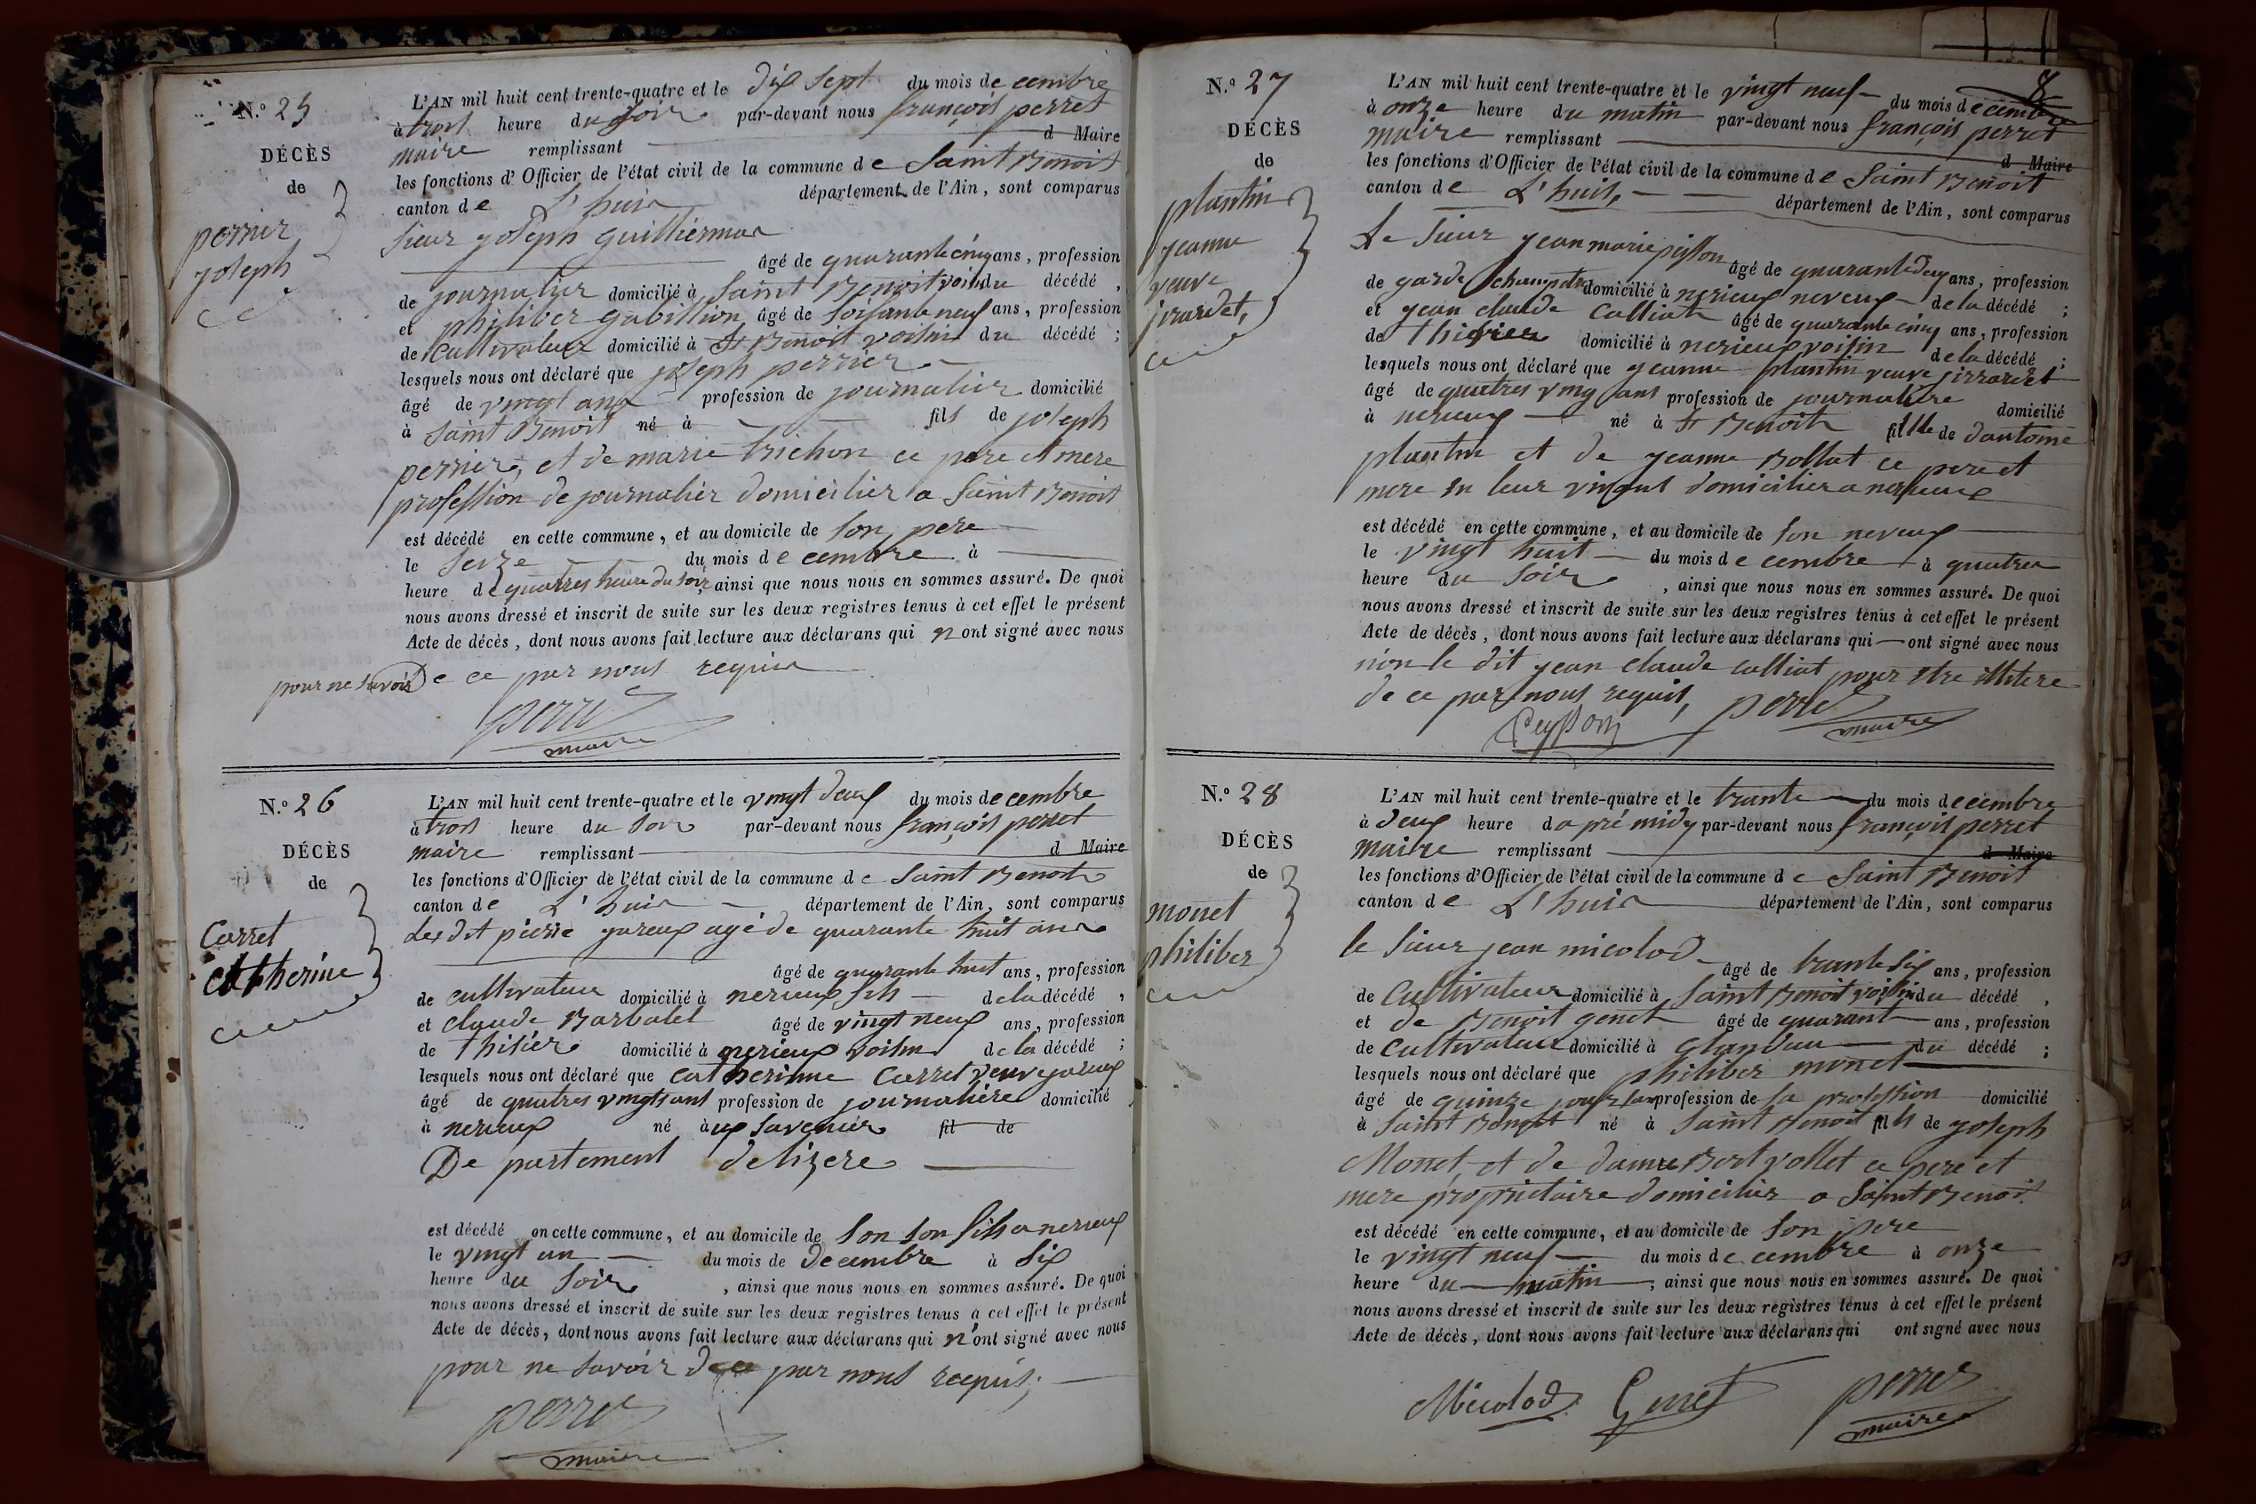 N.º 25
DÉCÈS
de
perrier
joseph
L'AN mil huit cent trente-quatre et le dix sept du mois decembre
à trois heure du soir par-devant nous françois perret
maire remplissant d Maire
les fonctions d'Officier de l'état civil de la commune de Saint Benoit
canton de L'huis département de l'Ain, sont comparus
sieur joseph guillierma
âgé de quarante cinq ans, profession
de journalier domicilié à Saint Benoit voisin du décédé,
et philiber gabillion âgé de soisante neuf ans, profession
de Cultivateur domicilié à St Benoit voisin du décédé;
lesquels nous ont déclaré que joseph perrier
âgé de vingt ans profession de journalier domicilié
à Saint Benoit né à fils de joseph
perrier, et de marie trichon ce pere et mere
profession de journalier domicilier a Saint Benoit
est décédé en cette commune, et au domicile de son pere
le seize du mois decembre à
heure de quatres heure du soir ainsi que nous nous en sommes assuré. De quoi
nous avons dressé et inscrit de suite sur les deux registres tenus à cet effet le présent
Acte de décès, dont nous avons fait lecture aux déclarans qui n ont signé avec nous
pour ne savoir De ce par nous requis
perret
maire
N.º 26
DÉCÈS
de
Carret
Catherine
L'AN mil huit cent trente-quatre et le vingt deux du mois decembre
à trois heure du soir par-devant nous françois perret
maire remplissant d Maire
les fonctions d'Officier de l'état civil de la commune de Saint Benoit
canton de L'huis département de l'Ain, sont comparus
Les dit pierre yareux agé de quarante huit ans
âgé de quarante huit ans, profession
de cultivateur domicilié à nerieux fils de la décédé,
et claude Barbolet âgé de vingt neuf ans, profession
de thisier domicilié à nerieux voisin de la décédé;
lesquels nous ont déclaré que catherinne Carret veuve yareux
âgé de quatres vingts ans profession de journaliere domicilié
à nerieux né à aux savenier fil de
De partement delizere
est décédé en cette commune, et au domicile de son son fils a nerieux
le vingt un du mois de Decembre à six
heure du soir, ainsi que nous nous en sommes assuré. De quoi
nous avons dressé et inscrit de suite sur les deux registres tenus à cet effet le présent
Acte de décès, dont nous avons fait lecture aux déclarans qui n'ont signé avec nous
pour ne savoir De ce par nous requis;
perret
maire
8
N.º 27
DÉCÈS
de
plantin
jeanne
veuve
jirardet,
L'AN mil huit cent trente-quatre et le vingt neuf du mois decembre
à onze heure du matin par-devant nous françois perret
maire remplissant d Maire
les fonctions d'Officier de l'état civil de la commune de Saint Benoit
canton de L'huis, département de l'Ain, sont comparus
Le Sieur jean marie pisson âgé de quarante deux ans, profession
de garde champetre domicilié à nerieux neveux de la décédé;
et jean claude Calliat âgé de quarante cinq ans, profession
de thisier domicilié à nerieux voisin de la décédé;
lesquels nous ont déclaré que jeanne plantin veuve jirrardet
âgé de quatres ving ans profession de journaliere domicilié
à nerieux né à St Benoit fille de dantoine
plantin et de jeanne Bollat ce pere et
mere en leur vivant domicilier a nerieux
est décédé en cette commune, et au domicile de son neveux
le vingt huit du mois decembre à quatres
heure du soir, ainsi que nous nous en sommes assuré. De quoi
nous avons dressé et inscrit de suite sur les deux registres tenus à cet effet le présent
Acte de décès, dont nous avons fait lecture aux déclarans qui ont signé avec nous
non le dit jean claude calliat pour etre illitere
de ce par nous requis,
Peysson perret
maire
N.º 28
DÉCÈS
de
monet
philiber
L'AN mil huit cent trente-quatre et le trante du mois decembre
à deux heure da pré midy par-devant nous françois perret
maire remplissant d Maire
les fonctions d'Officier de l'état civil de la commune de Saint Benoit
canton de L'huis département de l'Ain, sont comparus
le Sieur jean micolod âgé de trante six ans, profession
de Cultivateur domicilié à Saint Benoit voisin du décédé,
et de Benoit genet âgé de quarant ans, profession
de Cultivateur domicilié à glandieu du décédé;
lesquels nous ont déclaré que philiber monet
âgé de quinze jours san profession de sa profession domicilié
à Saint Benoit né à Saint Benoit fils de joseph
Monet, et de Bert vollet ce pere et
mere proprietaire domicilier a Saint Benoit
est décédé en cette commune, et au domicile de son pere
le vingt neuf du mois decembre à onze
heure du matin, ainsi que nous nous en sommes assuré. De quoi
nous avons dressé et inscrit de suite sur les deux registres tenus à cet effet le présent
Acte de décès, dont nous avons fait lecture aux déclarans qui ont signé avec nous
Micolod Genet perret
maire